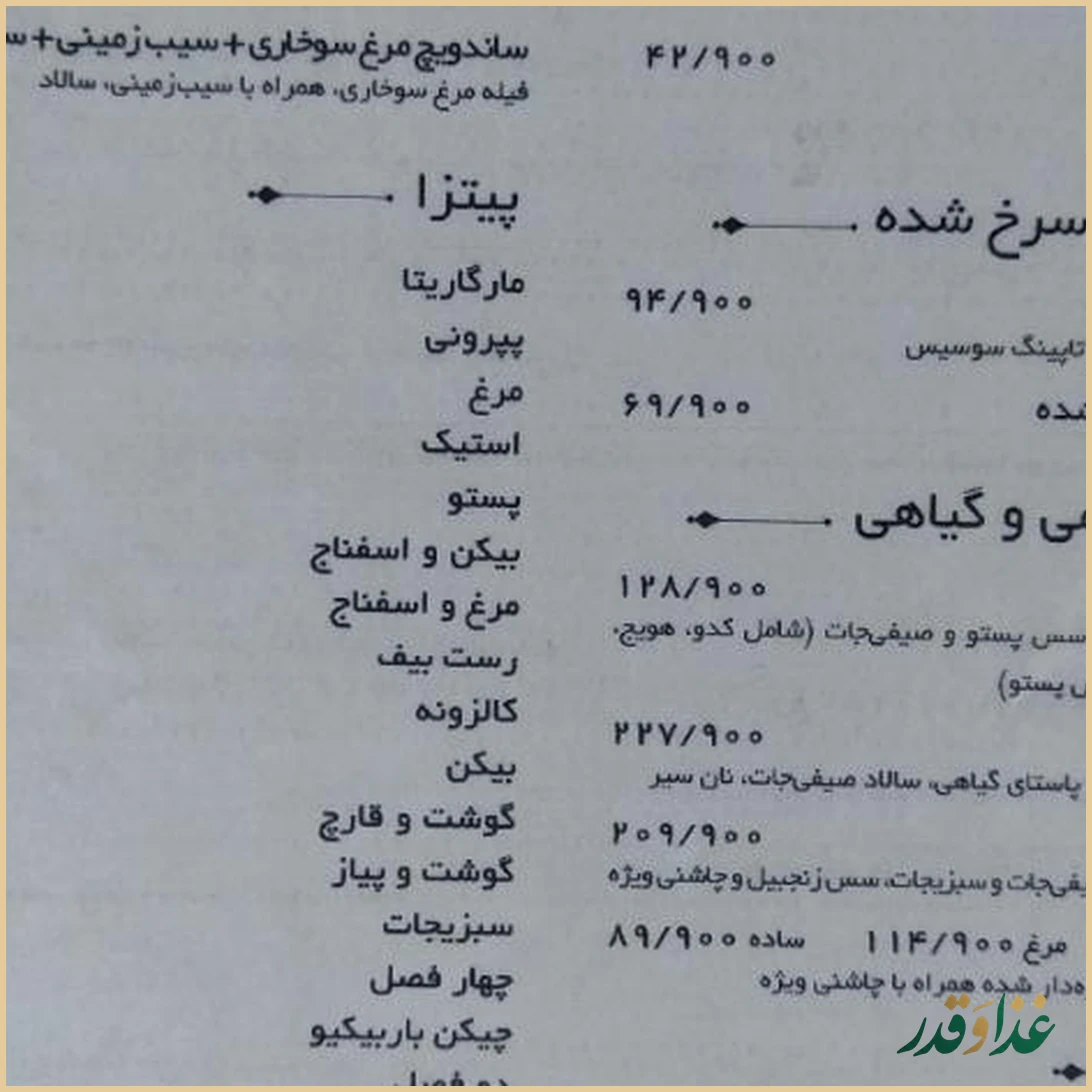 ۴۲/۹۰۰
سرخ شده
۹۴/۹۰۰
تاپینگ سوسیس
۶۹/۹۰۰
و گیاهی
۱۲۸/۹۰۰
سس پستو و صیفی‌جات (شامل کدو، هویج،
پستو)
۲۲۷/۹۰۰
پاستای گیاهی، سالاد صیفی‌جات، نان سیر
۲۰۹/۹۰۰
و سبزیجات، سس زنجبیل و چاشنی ویژه
مرغ ۱۱۴/۹۰۰ ساده ۸۹/۹۰۰
شده همراه با چاشنی ویژه
ساندویچ مرغ سوخاری + سیب زمینی +
فیله مرغ سوخاری، همراه با سیب‌زمینی، سالاد
پیتزا
مارگاریتا
پپرونی
مرغ
استیک
پستو
بیکن و اسفناج
مرغ و اسفناج
رست بیف
کالزونه
بیکن
گوشت و قارچ
گوشت و پیاز
سبزیجات
چهار فصل
چیکن باربیکیو
غذا و قدر